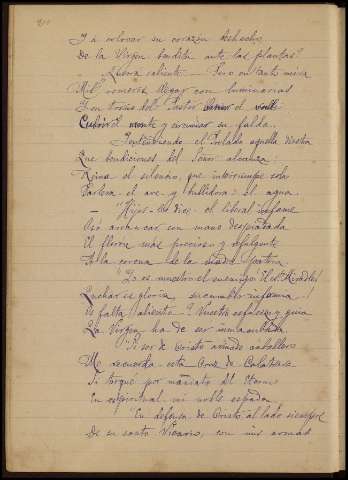 Y á colocar su corazón deshecho
De la Virgen bendita ante las plantas?
Mil romeros llegar con luminarias
Y en torno del Pastor el valle
Cubrir el monte y circundar su falda.
Extendiendo el Prelado aquella diestra
Que bendiciones del Señor alcanza:
Reina el silencio, que interrumpe sola
Parlera el ave y bullidora el agua.
— "Hijos - les dice - el liberal infame
Osó arrancar con mano despiadada
El florón más precioso y refulgente
A la corona de la madre Patria.
Luchar es gloria, sucumbir infamia!
Os falta aliento? Vuestro esfuerzo y guía
La Virgen ha de ser inmaculada
Si ser de Cristo armado caballero
Me recuerda esta Cruz de Calatrava
Si torqué por mandato del Eterno
En espiritual mi noble espada
En defensa de Cristo al lado siempre
De su santo Vicario, con mis armas